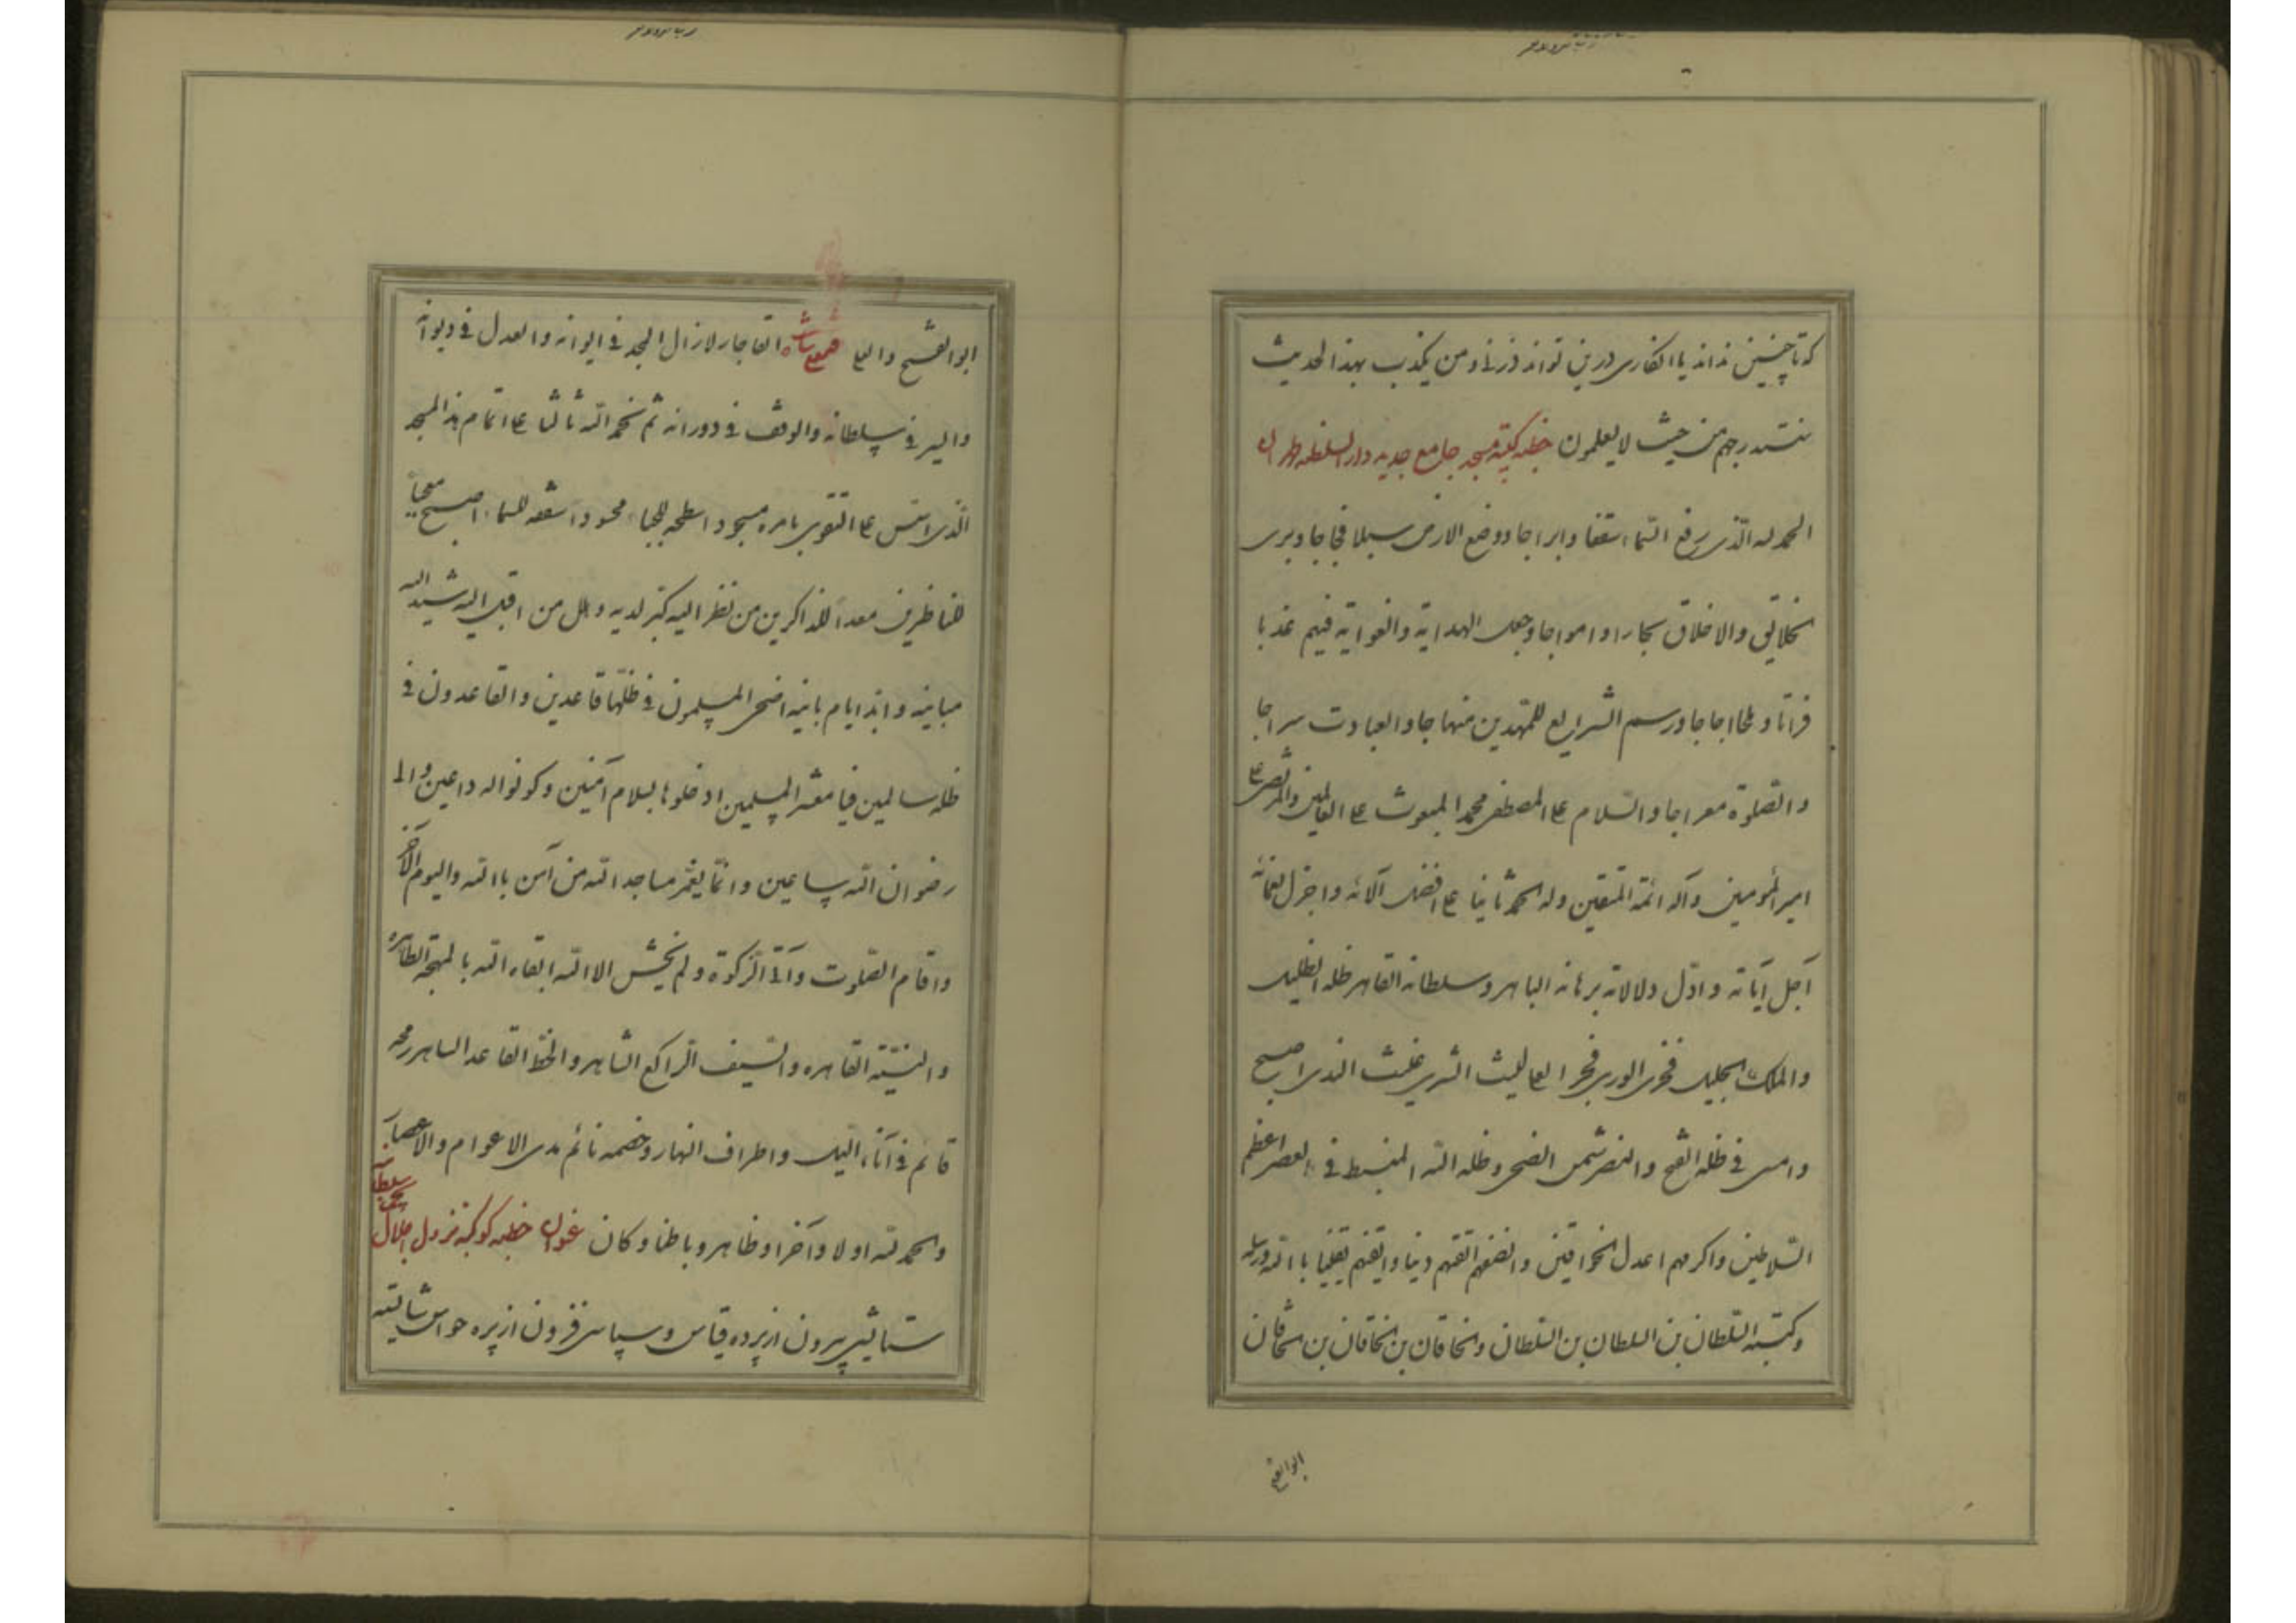 که تا چنین نداند یا انکاری درین تواند فذرنی و من یکذب بهذا الحدیث
سنستدرجهم من حیث لا یعلمون خطبه کتیبه مسجد جامع جدید دار السلطنه طهران
الحمد لله الذی رفع السماء سقفا و ابراجا و وضع الارض سبلا فجاجا و بری
الخلایق و الاخلاق بحارا و امواجا و جعل الهدایة و الغوایة فیهم عذبا
فراتا و ملحا اجاجا و رسم الشرایع للمهتدین منهاجا و العبادت سراجا
و الصلوة معراجا و السلام علی المصطفی محمد المبعوث علی العالمین و المرتضی علی
امیر المؤمنین و آله ائمة المتقین و له الحمد ثانیا علی افضل آلائه و اجزل نعمائه
اجل آیاته و ادل دلالاته برهانه الباهر و سلطانه القاهر ظله الظلیل
و الملک الجلیل فخری الوری فجر العلی لیث الشری غیث الندی اصبح
و امسی فی ظله الفتح و النصر شمس الضحی و ظله الله المنبسط فی العصر اعظم
السلاطین و اکرمهم اعدل الخواقین و انصفهم اتقنهم دینا و ایقنهم یقینا بالله و رسله
و کتبه السلطان بن السلطان بن السلطان و الخاقان بن الخاقان بن الخاقان
ابو الفتح
ابو الفتح و العلی فتحعلی شاه القاجار لازال المجد فی ایوانه و العدل فی دیوانه
و الیسر فی سلطانه و الوقف فی دورانه ثم نحمد الله ثالثا علی اتمام هذا المسجد
الذی اسس علی التقوی بامره مسجود اسطحه للجباه محسود اسقفه للسماء اصبح معجبا
للناظرین معدا للذاکرین من نظر الیه کبر لدیه و هلل من اقبل الیه شید الله
مبانیه و ابد ایام بانیه اضحی المسلمون فی ظلها قاعدین و القاعدون فی
ظله سالمین فیا معشر المسلمین ادخلوها بسلام آمنین و کونوا له داعین و الی
رضوان الله ساعین و انما یعمر مساجد الله من آمن بالله و الیوم الآخر
و اقام الصلوت و آتی الزکوة و لم یخش الا الله ابقاه الله بالمهجة الطاهره
و النیة القاهره و السیف الراکع الشاهر و الخط القاعد الساهر رمحه
قائم فی آناء اللیل و اطراف النهار و خصمه نائم مدی الاعوام و الاعصار
و الحمد لله اولا و آخرا و ظاهر و باطنا و کان عنوان خطبه کوکبه نزول اجلال سلطان
ستایش بیرون از پرده قیاس و سپاس فزون از پره حواس شایسته